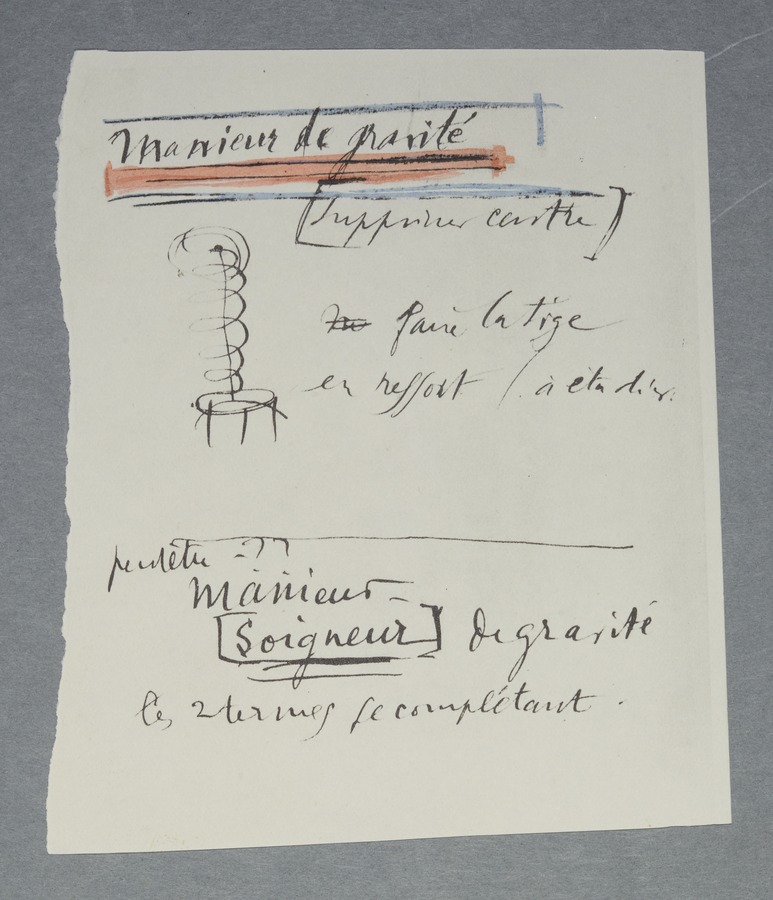 Manieur de gravité
[Supprimer centre]
faire la tige
en ressort (à étudier.
peutêtre -??
Manieur-
[Soigneur] de gravité
les 2 termes se complétant.